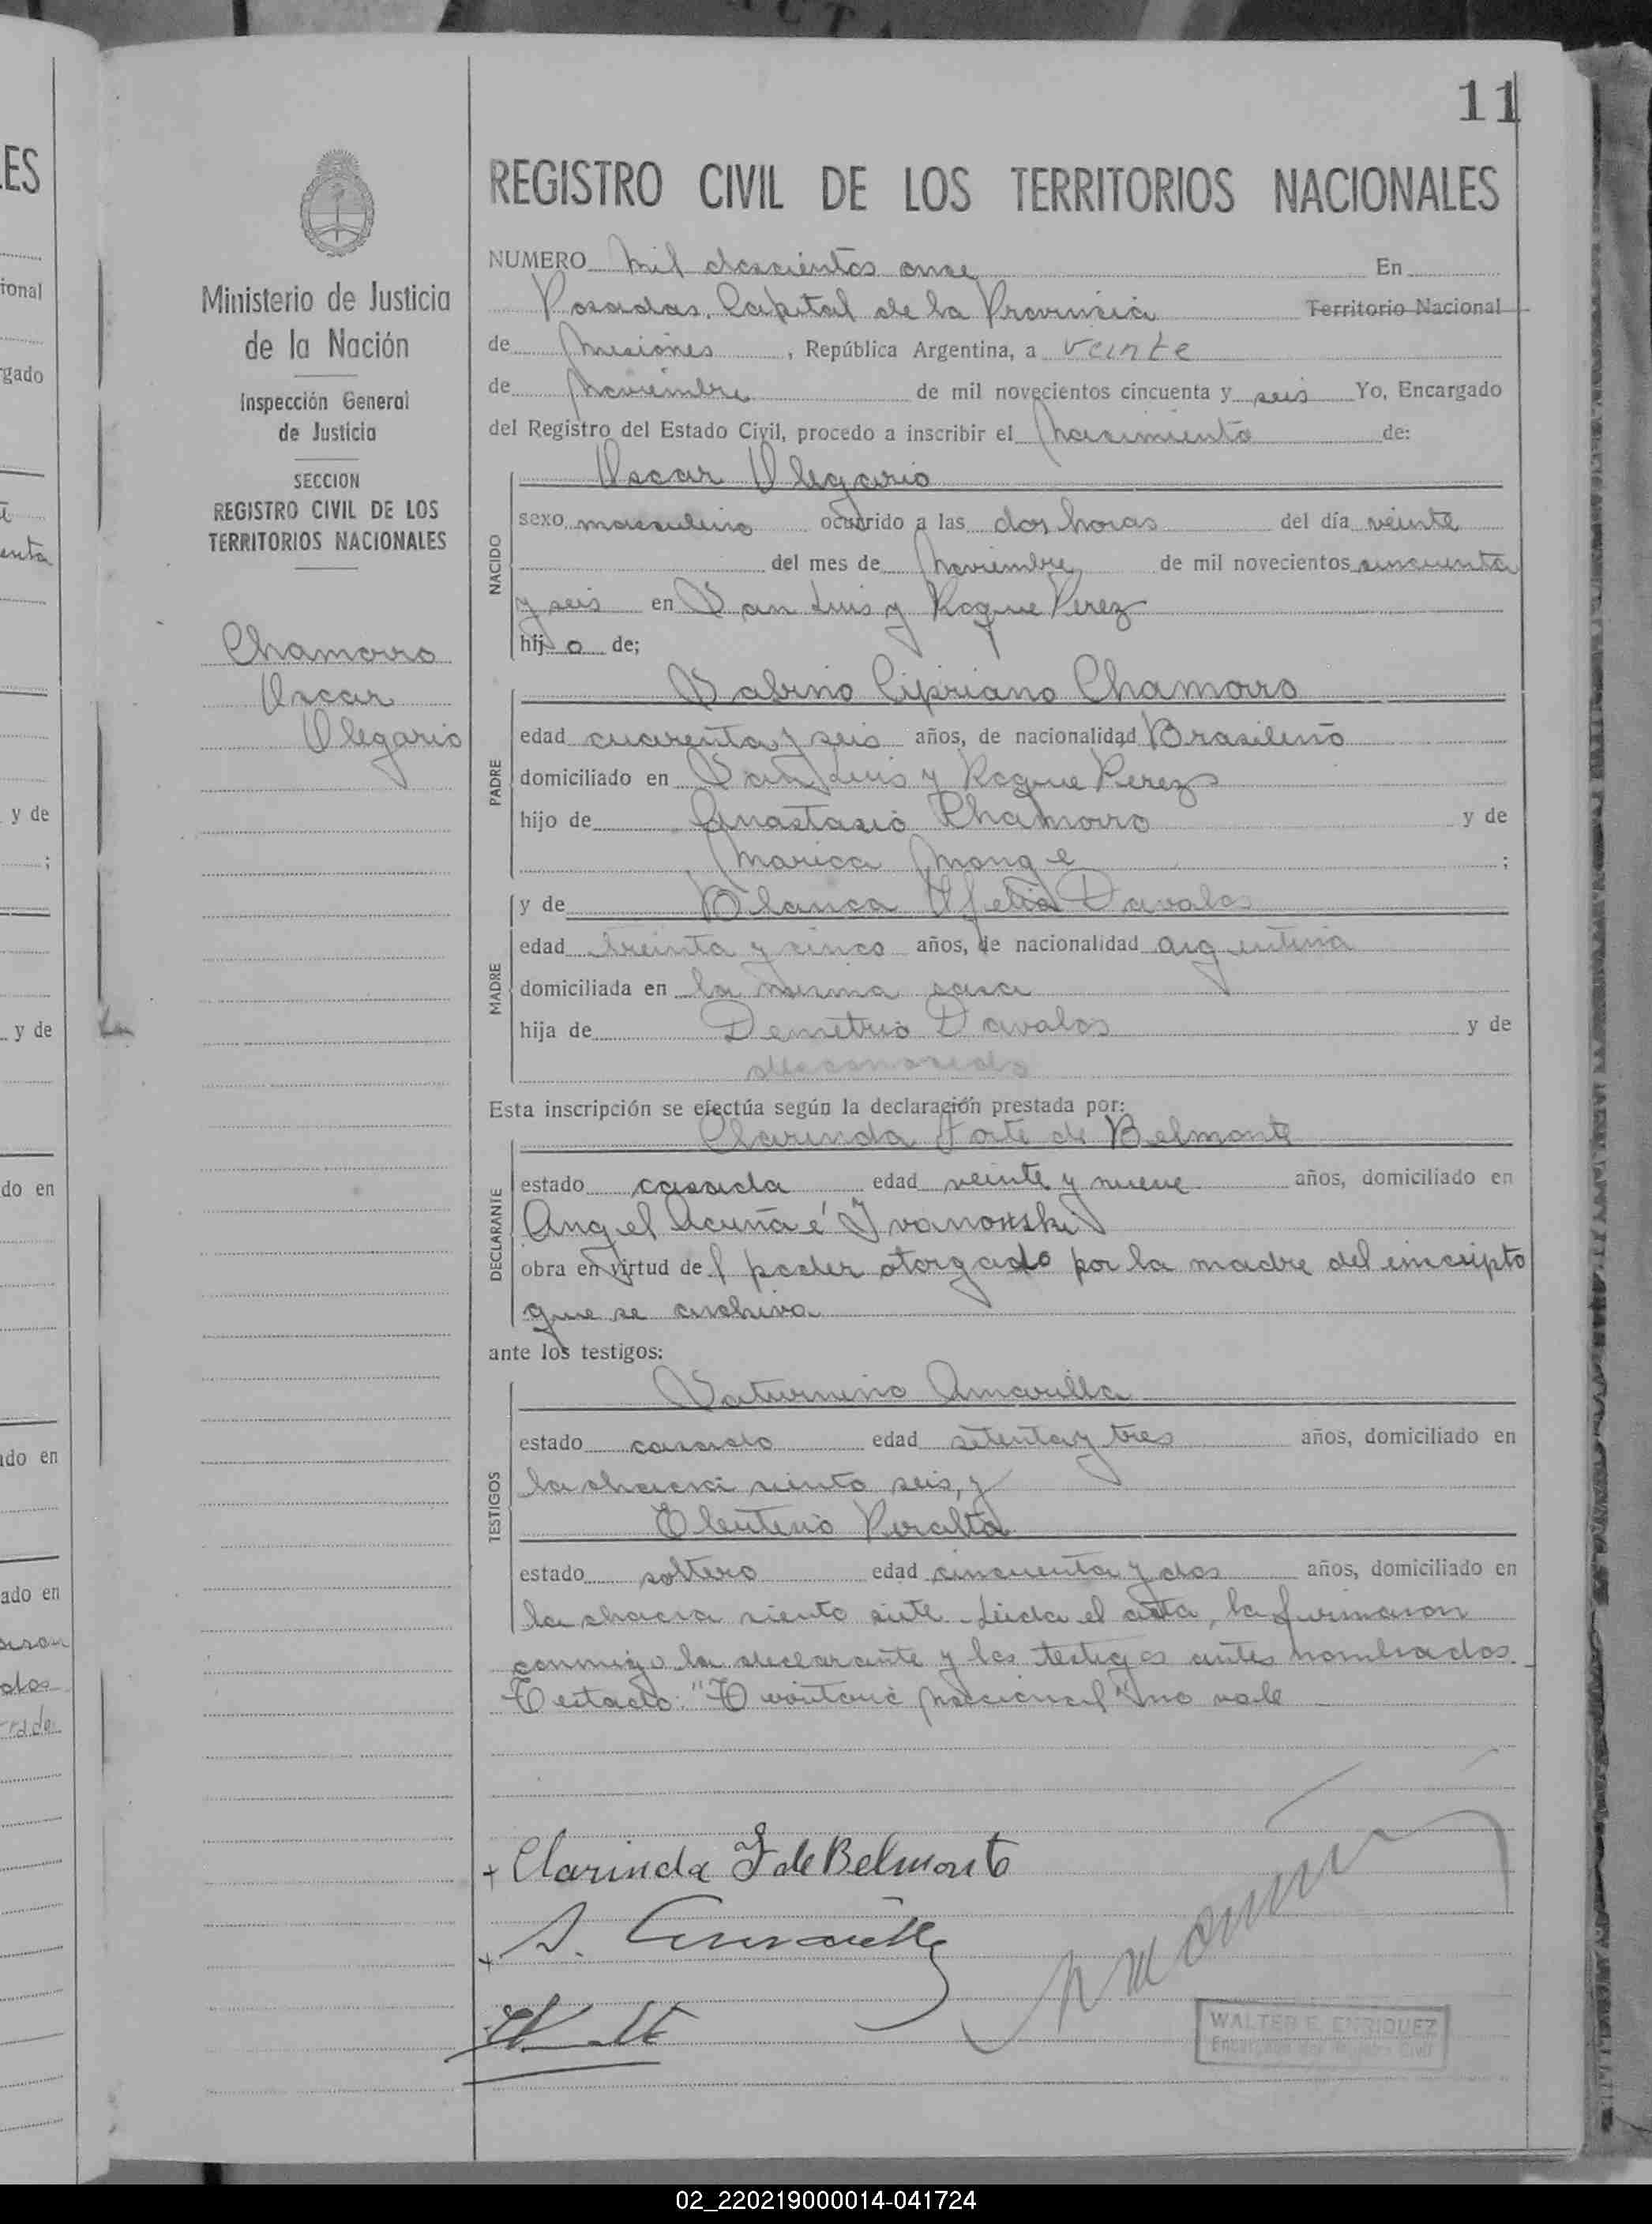 11
REGISTRO CIVIL DE LOS TERRITORIOS NACIONALES
Ministerio de Justicia
de la Nación
Inspección General
de Justicia
SECCION
REGISTRO CIVIL DE LOS
TERRITORIOS NACIONALES
Chamorro
Oscar
Olegario
NUMERO Mil doscientos once En
Posadas, Capital de la Provincia Territorio Nacional
de Misiones, República Argentina, a veinte
de Noviembre de mil novecientos cincuenta y seis Yo, Encargado
del Registro del Estado Civil, procedo a inscribir el Nacimiento de:
NACIDO
Oscar Olegario
sexo masculino ocurrido a las dos horas del día veinte
del mes de Noviembre de mil novecientos cincuenta
y seis en San Luis y Roque Perez
hijo de;
PADRE
Sabino Cipriano Chamorro
edad cuarenta y seis años, de nacionalidad Brasileño
domiciliado en San Luis y Roque Perez
hijo de Anastasio Chamorro y de
Marica Monge ;
MADRE
y de Blanca Ofelia Davalos
edad treinta y cinco años, de nacionalidad argentina
domiciliada en la misma casa
hija de Demetrio Davalos y de
desconocido
Esta inscripción se efectúa según la declaración prestada por:
DECLARANTE
Clarinda Forte de Belmonte
estado casada edad veinte y nueve años, domiciliado en
Angel Acuña é Ivanowski
obra en virtud del poder otorgado por la madre del inscripto
que se archiva
ante los testigos:
TESTIGOS
Saturnino Amarilla
estado casado edad setenta y tres años, domiciliado en
la chacra ciento seis, y
Eleuterio Peralta
estado soltero edad cincuenta y dos años, domiciliado en
la chacra ciento siete. Leida el acta, la firmaron
conmigo la declarante y los testigos antes nombrados.
Testado: "Territorio Nacional" no vale
+ Clarinda F de Belmonte
+ S. Amarilla
WALTER E. ENRIQUEZ
Encargado del Registro Civil
ES
ional
rgado
y de
;
y de
do en
ado en
ado en
02_220219000014-041724